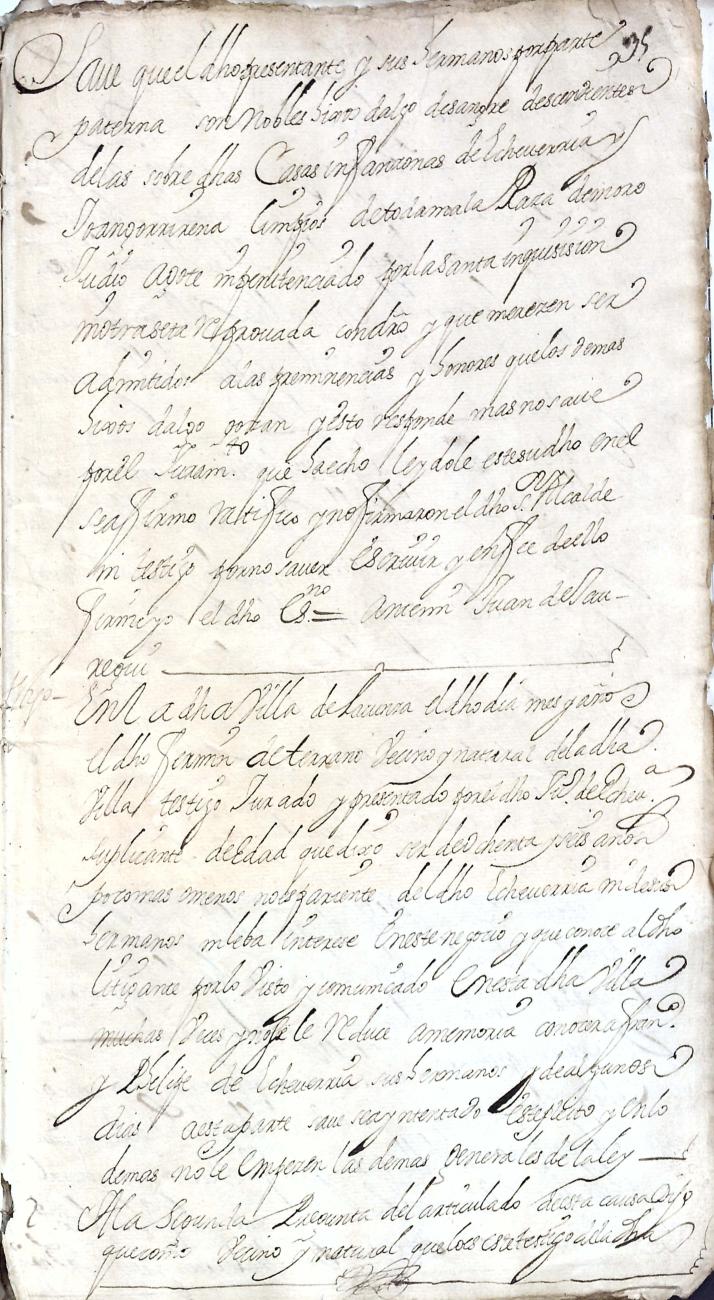 35
Save que el dho presentante y sus hermanos por parte
paterna son nobles hixos dalgo de sangre descendientes
de las sobre dhas Casas infanzonas de Echeverria y
limpios de toda mala Raza de moro
Judio Agote ni penitenciado por la Santa inquisision
ni otra seta Reprovada en dro y que merezen ser
admitidos a las preminencias y honores que los demas
hixos dalgo gozan y esto responde mas no save
por el Juram.to que ha echo leydole este su dho en el
se afirmo Ratifico y no firmaron el dho s.r Alcalde
ni testigo por no saver escrivir y en fee de ello
firme yo el dho es.no = Antemi Juan de
En la dha Villa de el dho dia mes y año
el dho Fermin de vecino y natural de la dha
Villa testigo Jurado y presentado por el dho Ju.o de Echev.a
suplicante de edad que dixo ser de ochenta y seis años
poco mas o menos no es pariente del dho Echeverria ni de sus
hermanos ni leba interese en este negocio y que conoce al dho
litigante por lo visto y comunicado en esta dha Villa
muchas veces y no se le Reduce a memoria conocer a Fran.co
y Phelipe de Echeverria sus hermanos y de algunos
dias a esta parte save se a yntentado este pleito y en lo
demas no le empezen las demas generales de la ley
A la segunda Pregunta del articulado de esta causa Dixo
que como vecino y natural que lo es este testigo de la dha